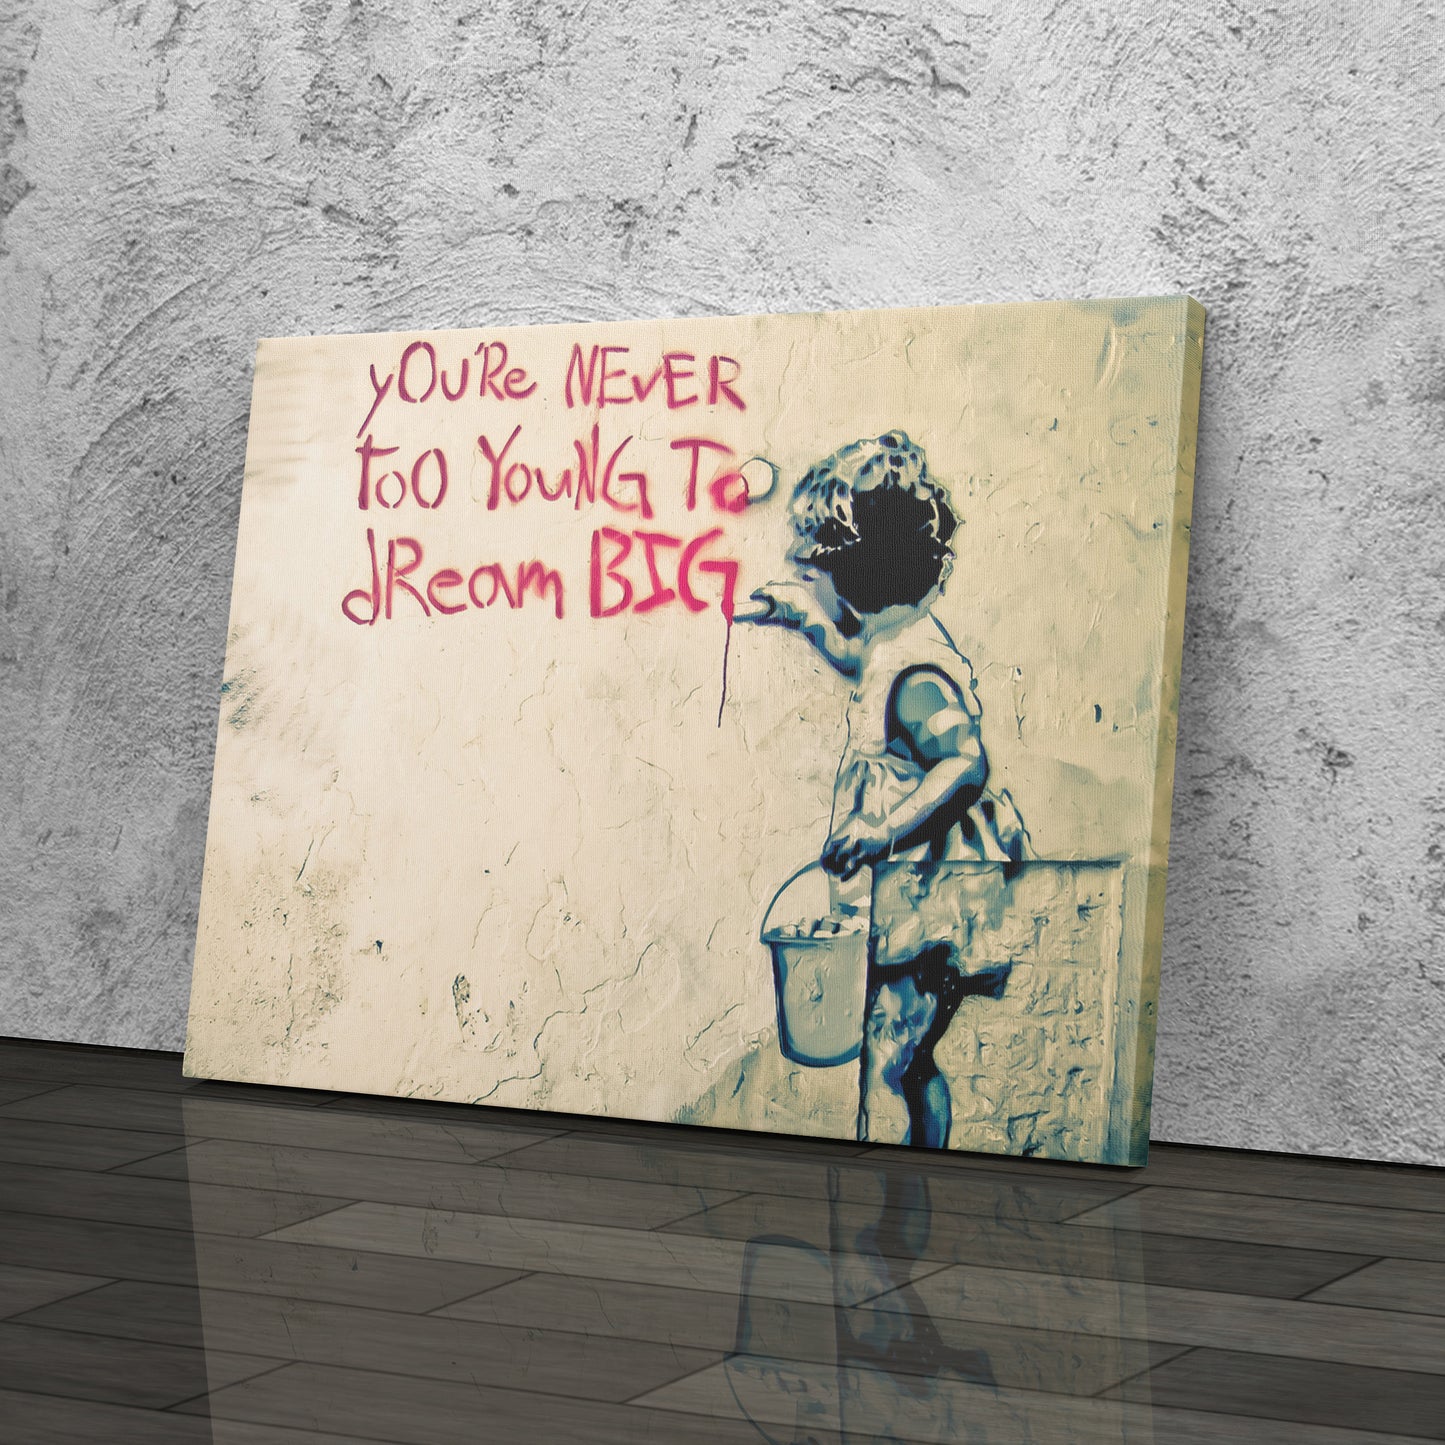 yOU'Re NEvER
too YoUNG To
dReam BIG